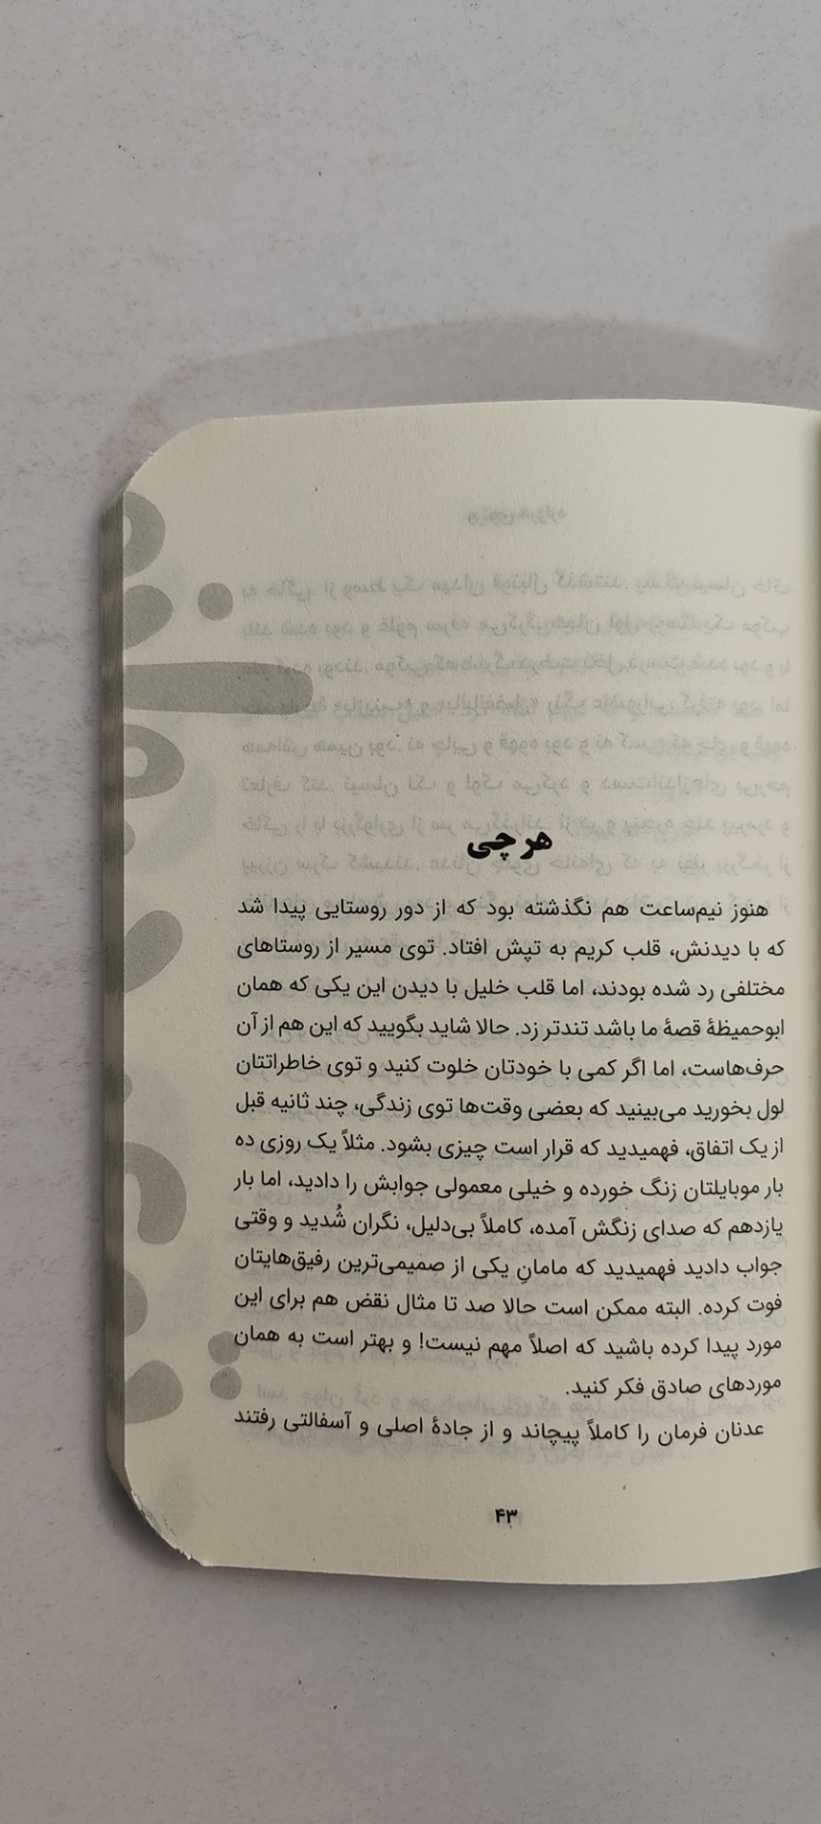 هر چی
هنوز نیم‌ساعت هم نگذشته بود که از دور روستایی پیدا شد
که با دیدنش، قلب کریم به تپش افتاد. توی مسیر از روستاهای
مختلفی رد شده بودند، اما قلب خلیل با دیدن این یکی که همان
ابوحمیظهٔ قصهٔ ما باشد تندتر زد. حالا شاید بگویید که این هم از آن
حرف‌هاست، اما اگر کمی با خودتان خلوت کنید و توی خاطراتتان
لول بخورید می‌بینید که بعضی وقت‌ها توی زندگی، چند ثانیه قبل
از یک اتفاق، فهمیدید که قرار است چیزی بشود. مثلاً یک روزی ده
بار موبایلتان زنگ خورده و خیلی معمولی جوابش را دادید، اما بار
یازدهم که صدای زنگش آمده، کاملاً بی‌دلیل، نگران شُدید و وقتی
جواب دادید فهمیدید که مامانِ یکی از صمیمی‌ترین رفیق‌هایتان
فوت کرده. البته ممکن است حالا صد تا مثال نقض هم برای این
مورد پیدا کرده باشید که اصلاً مهم نیست! و بهتر است به همان
موردهای صادق فکر کنید.
عدنان فرمان را کاملاً پیچاند و از جادهٔ اصلی و آسفالتی رفتند
۴۳